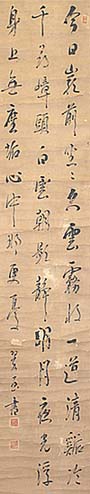 今日巖前坐々久雲霧收一道清谿冷
千尋嶂頭白雲朝影靜明月夜光浮
身上無塵垢心中那更憂 書